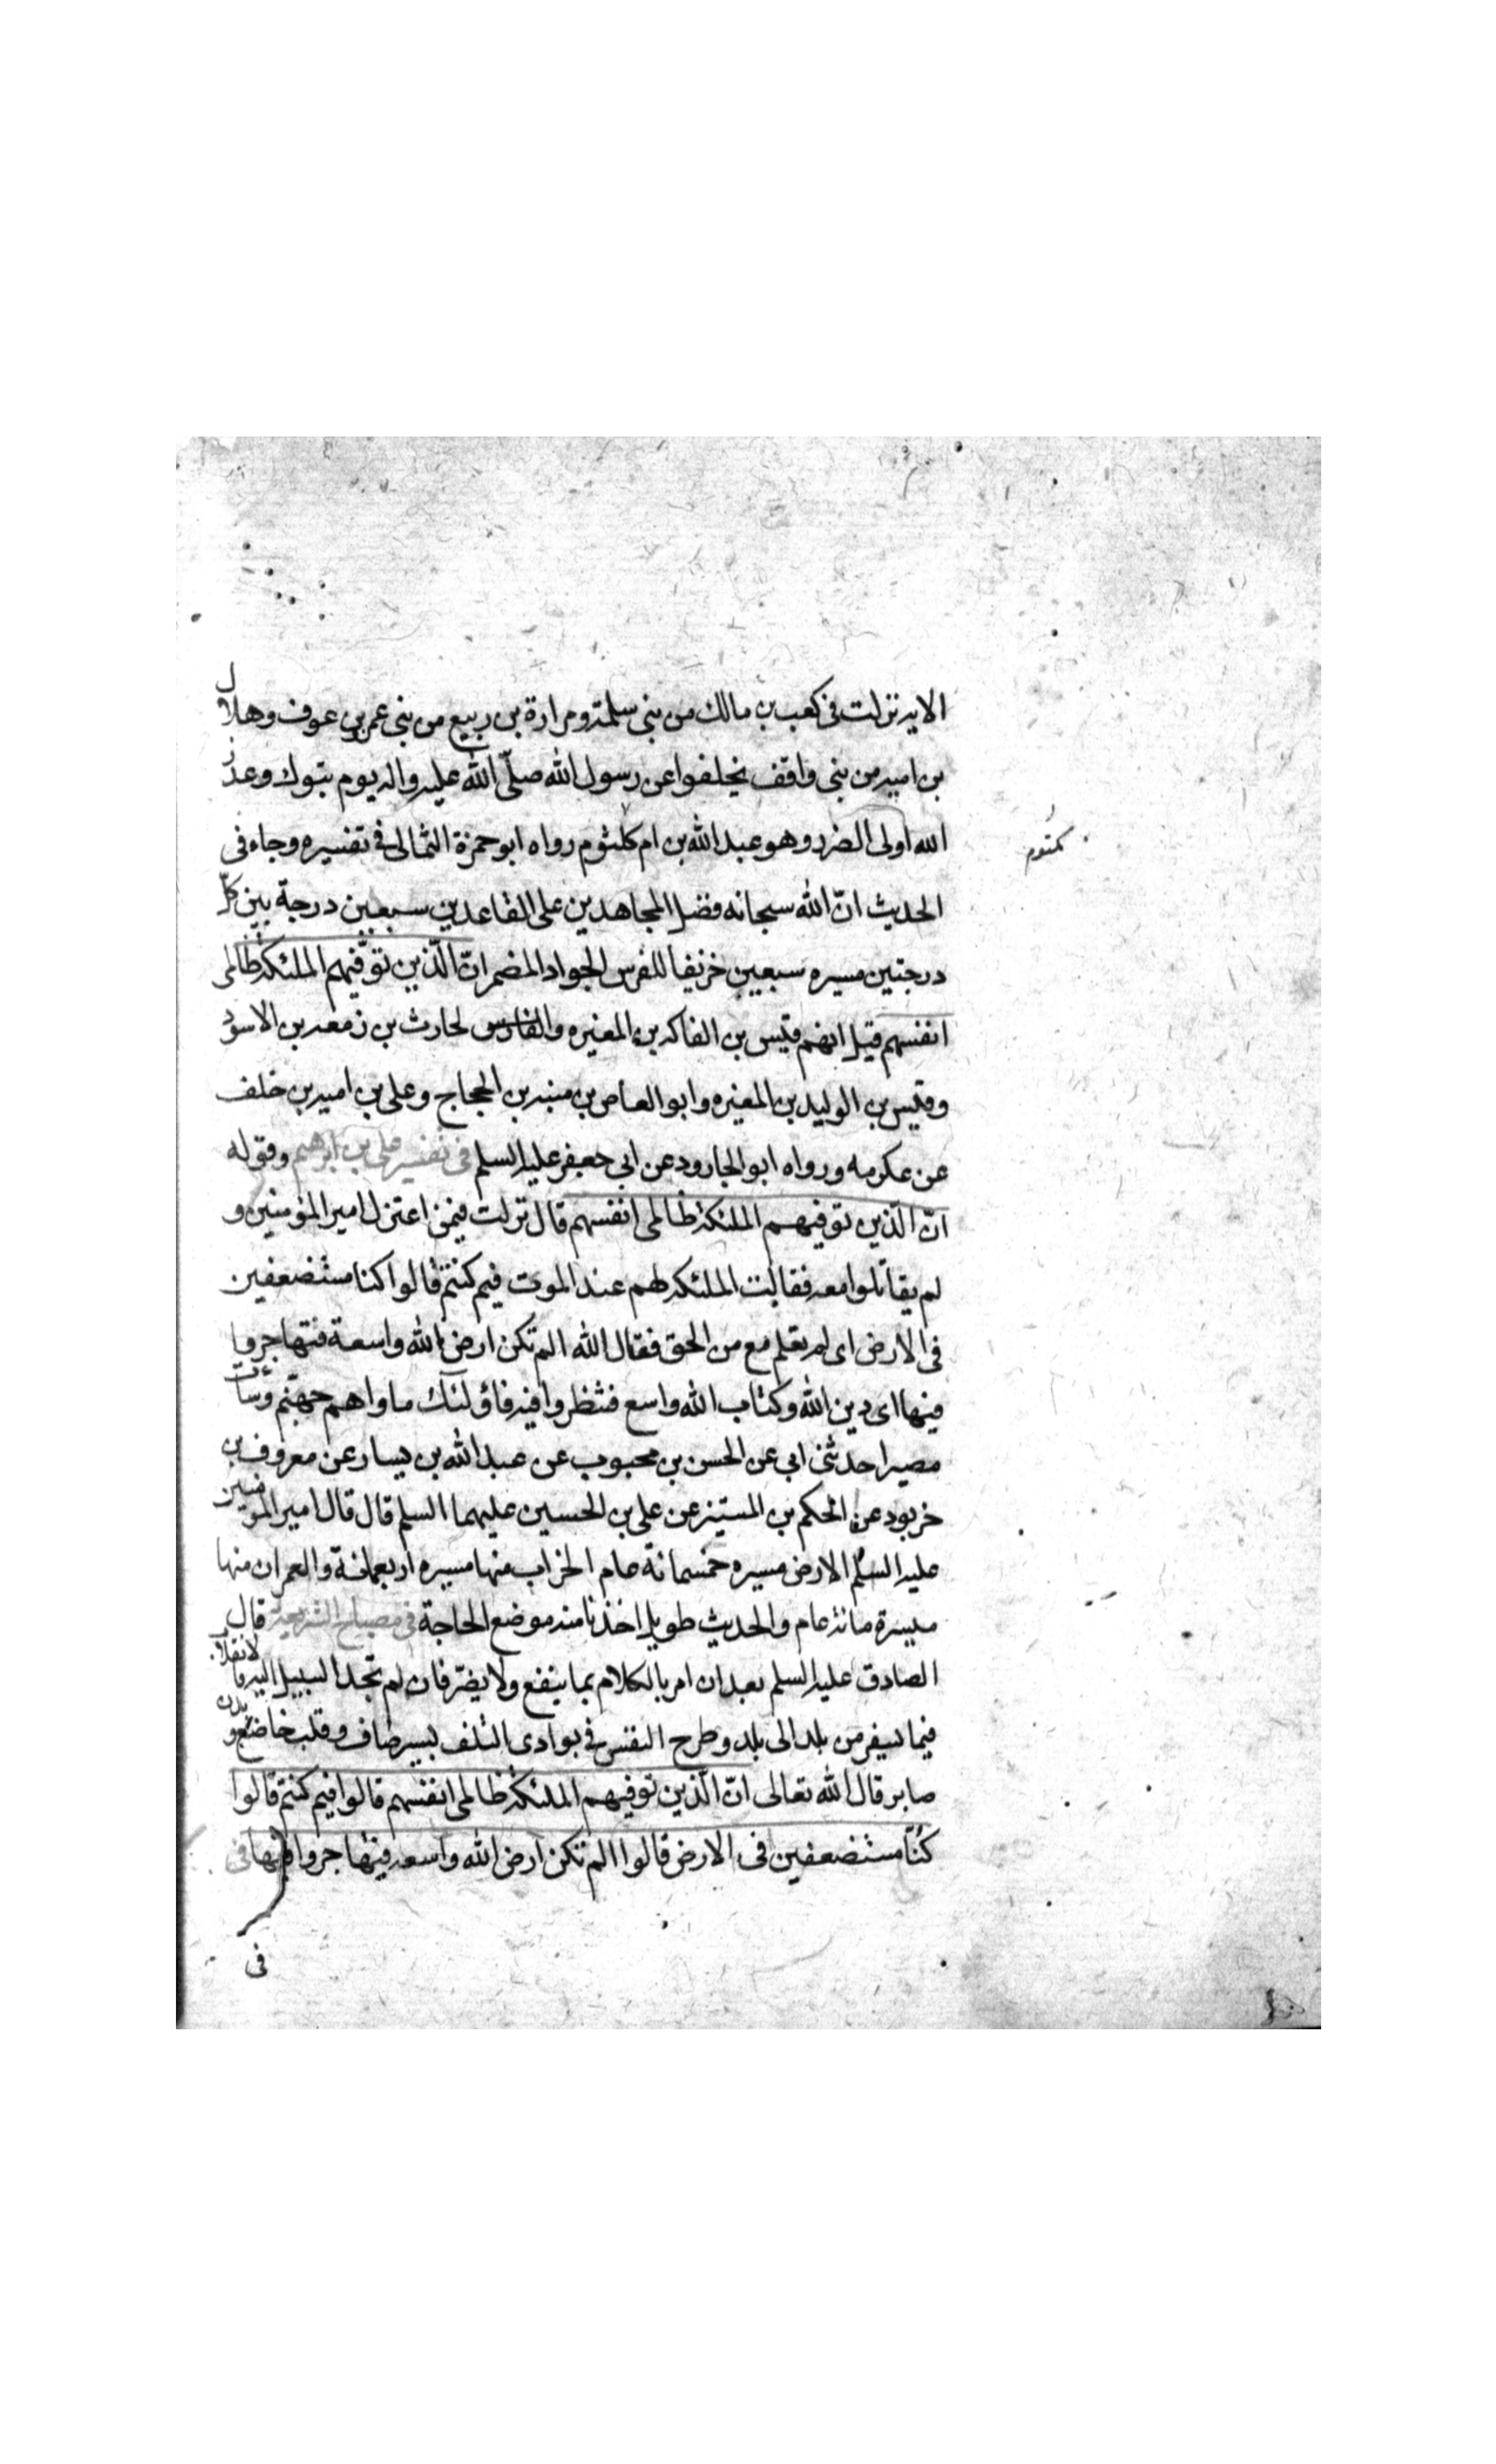 الايه نزلت فى كعب بن مالك من بنى سلمة ومرارة بن ربيع من بنى عمر بن عوف وهلال
بن اميه من بنى واقف تخلفوا عن رسول الله صلّى الله عليه واله يوم تبوك وعذر
الله اولى الضرر وهو عبد الله بن ام كلثوم رواه ابو حمزة الثمالى فى تفسيره وجاء فى
مكتوم
الحديث انّ الله سبحانه فضل المجاهدين على القاعدين سبعين درجة بين كلّ
درجتين مسيره سبعين خريفا للفرس الجواد المضمر انّ الّذين توفّيهم الملئكة ظالمى
انفسهم قيل انهم قيس بن الفاكه بن المغيره والفارس لحارث بن زمعه بن الاسود
وقيس بن الوليد بن المغيره وابو العاص بن منبه بن الحجاج وعلى بن اميه بن خلف
عن عكرمه ورواه ابو الجارود عن ابى جعفر عليه السلم فى تفسير على بن ابرهيم وقوله
انّ الّذين توفيهم الملئكة ظالمى انفسهم قال نزلت فيمن اعتزل امير المؤمنين و
لم يقاتلوا معه فقالت الملئكه لهم عند الموت فيم كنتم قالوا كنا مستضعفين
فى الارض اى لم نعلم مع من الحق فقال الله الم تكن ارض الله واسعة فتهاجروا
فيها اى دين الله وكتاب الله واسع فتنظروا فيه فاولئك ماواهم جهنّم وسآءت
مصيرا حدثنى ابى عن الحسن بن محبوب عن عبد الله بن يسار عن معروف بن
خربود عن الحكم بن المستنير عن على بن الحسين عليهما السلم قال قال امير المؤمنين
عليه السلم الارض مسيره خمسمائة عام الخراب منها مسيره اربعمائة والعمران منها
مسيرة مائة عام والحديث طويل اخذنا منه موضع الحاجة فى مصباح الشريعة قال
الصادق عليه السلم بعد ان امر بالكلام بما ينفع ولا يضرّ فان لم تجد السبيل اليه فالانقلاب
فيما يسفر من بلد الى بلد وطرح النفس فى بوادى التلف بسير صاف وقلب خاضع وبدن
صابر قال الله تعالى انّ الّذين توفيهم الملئكة ظالمى انفسهم قالوا فيم كنتم قالوا
كنّا مستضعفين فى الارض قالوا الم تكن ارض الله واسعه فتهاجروا فيها فى
فى